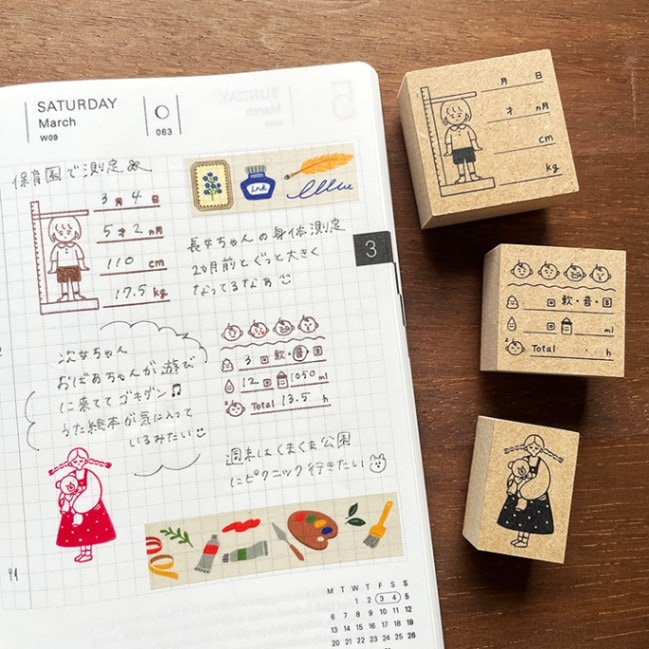 SATURDAY
March
W09
063
保育園で測定
3月4日
5才2ヵ月
110 cm
17.5 kg
ink
長女ちゃんの身体測定
2ヵ月前とぐっと大きく
なってるなぁ
3
次女ちゃん
おばあちゃんが遊び
に来ててゴキゲン♫
うた絵本が気に入って
いるみたい
3回 軟・普・固
12回 1050 ml
Total 13.5 h
週末はくまくま公園
にピクニック行きたい
M T W T F S S
1 2 3 4 5
6 7 8 9 10 11 12
13 14 15 16 17 18 19
20 21 22 23 24 25 26
月 日
才 ヵ月
cm
kg
回 軟・普・固
回 ml
Total . h